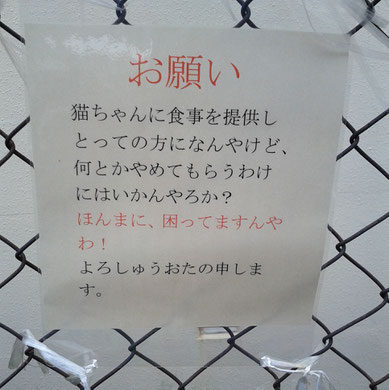 お願い
猫ちゃんに食事を提供し
とっての方になんやけど、
何とかやめてもらうわけ
にはいかんやろか？
ほんまに、困ってますんや
わ！
よろしゅうおたの申しま
す。